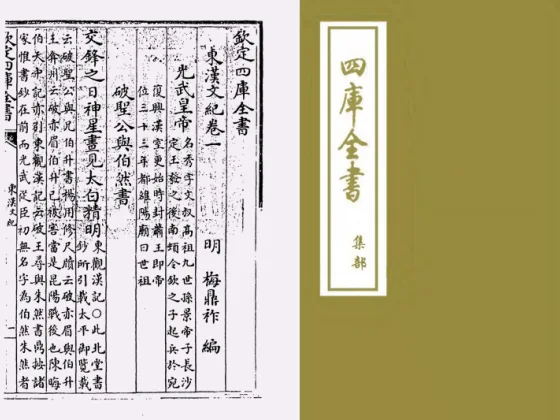 欽定四庫全書
東漢文紀卷一
明 梅鼎祚 編
光武皇帝
名秀字文叔高祖九世孫景帝子長沙
定王發之後南頓令欽之子起兵於宛
復興漢室更始時封蕭王即帝
位三十三年都雒陽廟曰世祖
破聖公與伯然書
交鋒之日神星晝見太白精明
東觀漢記〇此北堂書
鈔所引載太平御覽載
云破聖公與況伯升書楊用修尺牘云破赤眉與伯升
王弇州云破赤眉伯升已被害當是昆陽戰後也陳晦
伯天中記亦引東觀漢記云破王尋與朱然書鼎按諸
家惟書鈔在前而光武從臣初無名字為伯然朱然者
欽定四庫全書
東漢文紀
四庫全書
集部